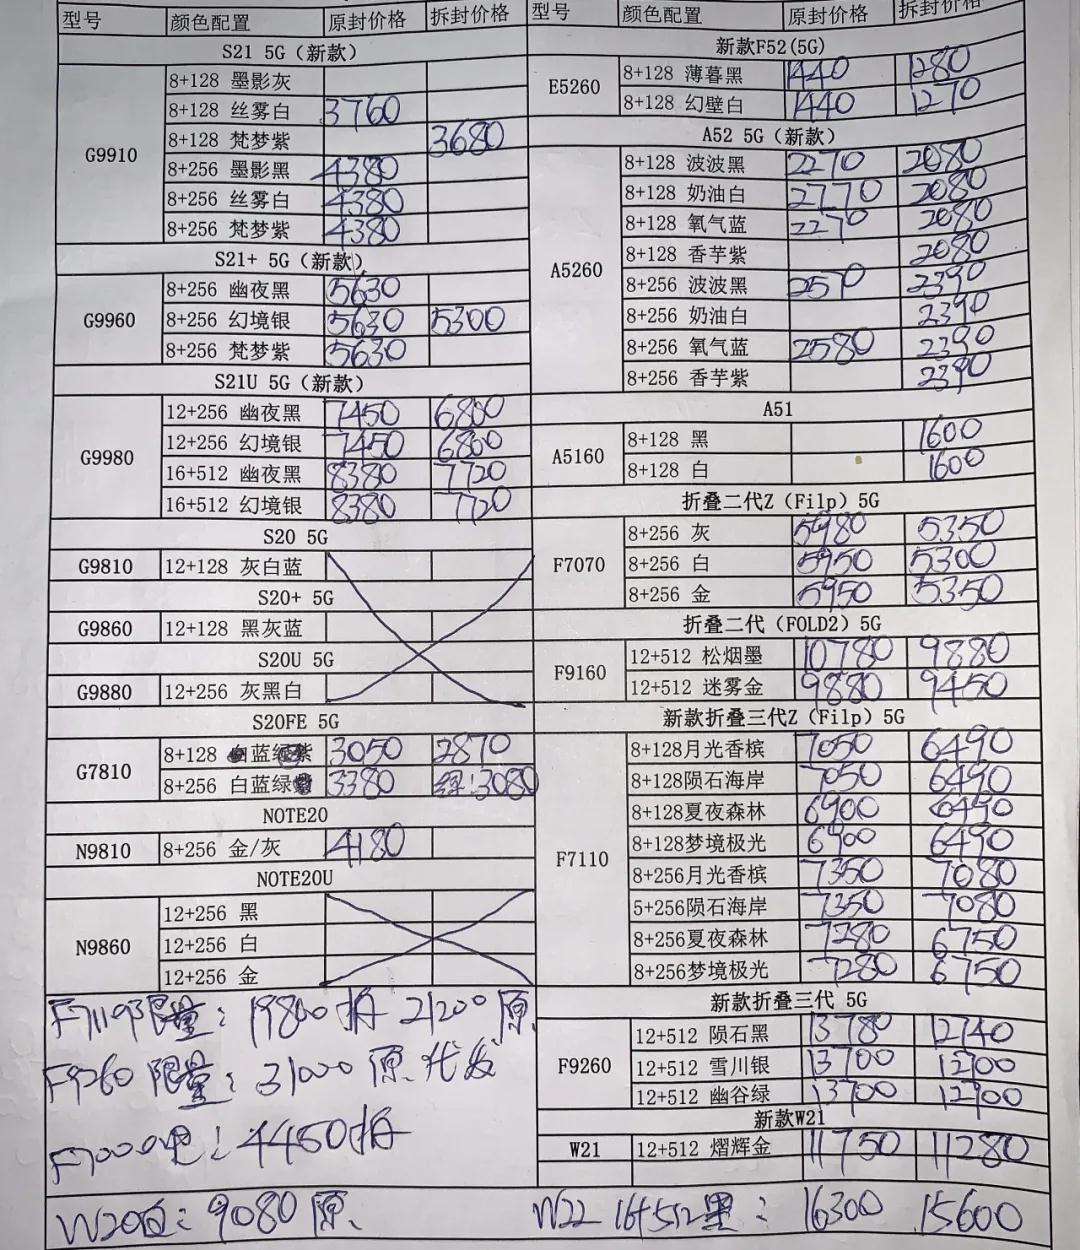 型号 颜色配置 原封价格 拆封价格
S21 5G（新款）
G9910
8+128 墨影灰
8+128 丝雾白 3760
8+128 梵梦紫 3680
8+256 墨影黑 4380
8+256 丝雾白 4380
8+256 梵梦紫 4380
S21+ 5G（新款）
G9960
8+256 幽夜黑 5630
8+256 幻境银 5630 5300
8+256 梵梦紫 5630
S21U 5G（新款）
G9980
12+256 幽夜黑 7450 6800
12+256 幻境银 7450 6800
16+512 幽夜黑 8380 7720
16+512 幻境银 8380 7720
S20 5G
G9810 12+128 灰白蓝
S20+ 5G
G9860 12+128 黑灰蓝
S20U 5G
G9880 12+256 灰黑白
S20FE 5G
G7810
8+128 蓝 3050 2870
8+256 白蓝绿 3380 绿:3080
NOTE20
N9810 8+256 金/灰 4180
NOTE20U
N9860
12+256 黑
12+256 白
12+256 金
限量: 19800拆 21200原
F9260 限量: 31000原.代发
4450拆
型号 颜色配置 原封价格 拆封价格
新款F52(5G)
E5260
8+128 薄暮黑 1440 1280
8+128 幻壁白 1440 1270
A52 5G（新款）
A5260
8+128 波波黑 2270 2080
8+128 奶油白 2770 2080
8+128 氧气蓝 2270 2080
8+128 香芋紫 2080
8+256 波波黑 2570 2390
8+256 奶油白 2390
8+256 氧气蓝 2580 2390
8+256 香芋紫 2390
A51
A5160
8+128 黑 1600
8+128 白 1600
折叠二代Z（Filp）5G
F7070
8+256 灰 5980 5350
8+256 白 5950 5300
8+256 金 5950 5350
折叠二代（FOLD2）5G
F9160
12+512 松烟墨 10780 9880
12+512 迷雾金 9880 9450
新款折叠三代Z（Filp）5G
F7110
8+128月光香槟 7050 6490
8+128陨石海岸 7050 6490
8+128夏夜森林 6900 6490
8+128梦境极光 6900 6490
8+256月光香槟 7350 7080
5+256陨石海岸 7350 7080
8+256夏夜森林 7280 6750
8+256梦境极光 7280 6750
新款折叠三代 5G
F9260
12+512 陨石黑 13780 12740
12+512 雪川银 13700 12700
12+512 幽谷绿 13700 12700
新款W21
W21 12+512 熠辉金 11750 11280
W20白: 9080原.
W22 16+512黑: 16300 15600